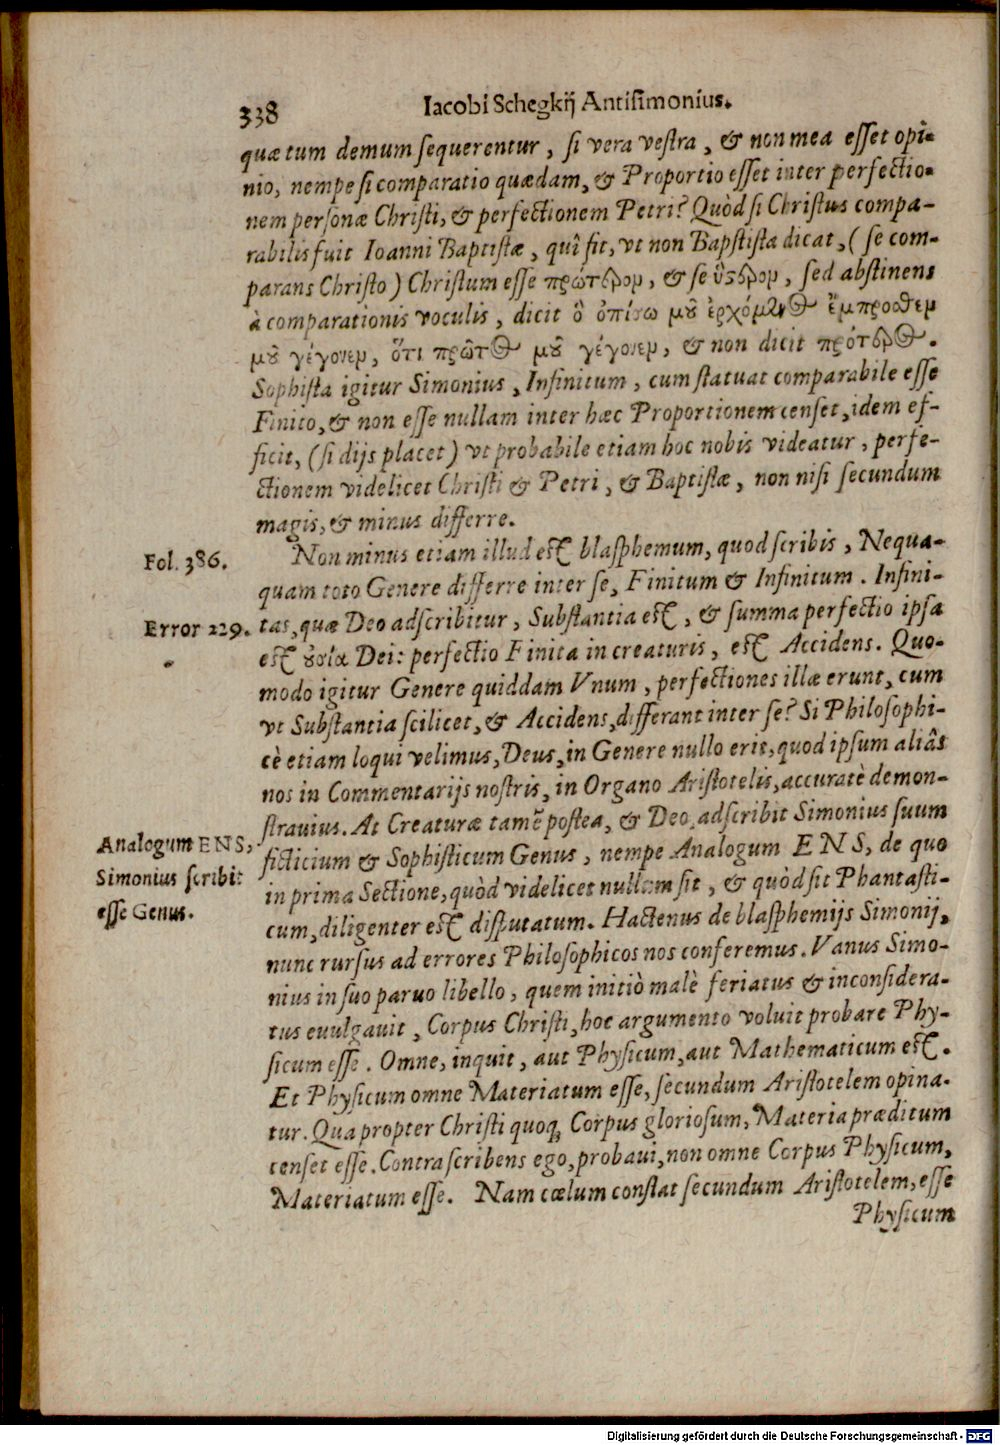 338 Iacobi Schegkij Antisimonius.
quæ tum demum sequerentur, si vera vestra, & non mea esset opi-
nio, nempe si comparatio quædam, & Proportio esset inter perfectio-
nem personæ Christi, & perfectionem Petri? Quòd si Christus compa-
rabilis fuit Ioanni Baptistæ, quî fit, vt non Bapstista dicat, (se com-
parans Christo) Christum esse πρώτερον, & se ὕστερον, sed abstinens
à comparationis voculis, dicit ὁ ὀπίσω μοῦ ἐρχόμενος ἔμπροσθεν
μοῦ γέγονεν, ὅτι πρῶτος μοῦ γέγονεν, & non dicit πρότερος.
Sophista igitur Simonius, Infinitum, cum statuat comparabile esse
Finito, & non esse nullam inter hæc Proportionem censet, idem ef-
ficit, (si dijs placet) vt probabile etiam hoc nobis videatur, perfe-
ctionem videlicet Christi & Petri, & Baptistæ, non nisi secundum
magis, & minus differre.
Fol. 386. Non minus etiam illud est blasphemum, quod scribis, Nequa-
quam toto Genere differre inter se, Finitum & Infinitum. Infini-
Error 229. tas, quæ Deo adscribitur, Substantia est, & summa perfectio ipsa
est οὐσία Dei: perfectio Finita in creaturis, est Accidens. Quo-
modo igitur Genere quiddam Vnum, perfectiones illæ erunt, cum
vt Substantia scilicet, & Accidens, differant inter se? Si Philosophi-
cè etiam loqui velimus, Deus, in Genere nullo erit, quod ipsum aliâs
nos in Commentarijs nostris, in Organo Aristotelis, accuratè demon-
strauius. At Creaturæ tamē postea, & Deo, adscribit Simonius suum
Analogum ENS, ficticium & Sophisticum Genus, nempe Analogum ENS, de quo
Simonius scribit in prima Sectione, quòd videlicet nullum sit, & quòd sit Phantasti-
esse Genus. cum, diligenter est disputatum. Hactenus de blasphemijs Simonij,
nunc rursus ad errores Philosophicos nos conferemus. Vanus Simo-
nius in suo paruo libello, quem initiò malè feriatus & inconsidera-
tus euulgauit, Corpus Christi, hoc argumento voluit probare Phy-
sicum esse. Omne, inquit, aut Physicum, aut Mathematicum est.
Et Physicum omne Materiatum esse, secundum Aristotelem opina-
tur. Qua propter Christi quoq; Corpus gloriosum, Materia præditum
censet esse. Contra scribens ego, probaui, non omne Corpus Physicum,
Materiatum esse. Nam cœlum constat secundum Aristotelem, esse
Physicum
Digitalisierung gefördert durch die Deutsche Forschungsgemeinschaft - DFG